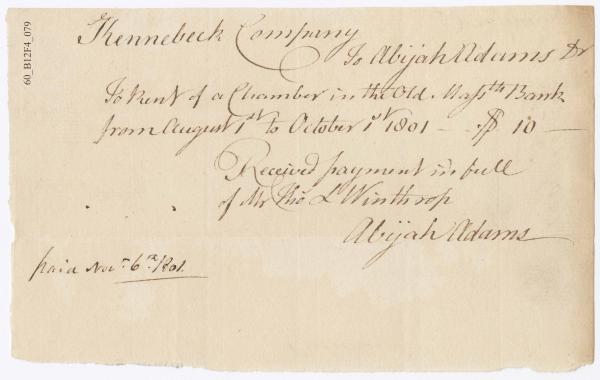 60_B12F4_079
Kennebeck Company
To Abijah Adams Dr
To Rent of a Chamber in the Old Massts Bank
from August 1st to October 1st 1801 — $ 10 —
Received payment in full
of Mr Tho L Winthrop
Abijah Adams
paid Nov. 6th 1801.